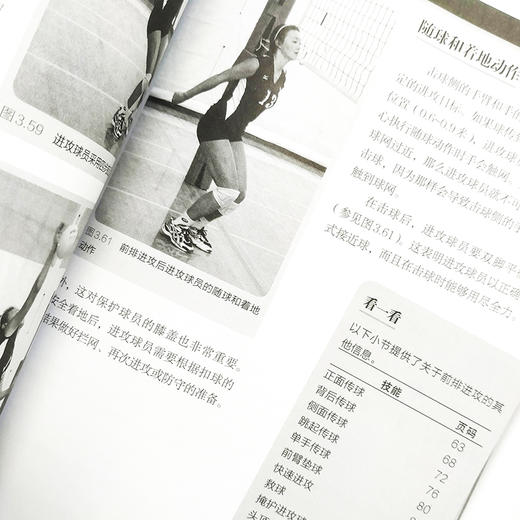 图3.59
进攻球员采用
图3.61 前排进攻后进攻球员的随球和着地
动作
外，这对保护球员的膝盖也非常重要。
安全着地后，进攻球员需要根据扣球的
结果做好拦网、再次进攻或防守的准备。
随球和着地动作
击球侧的手臂和手
定的进攻目标。如果球在
位置（0.6~0.9米），进攻球
心执行随球动作时手会触网。
球网过近，那么进攻球员就不可
击球，因为那样会导致击球侧的手
触到球网。
在击球后，进攻球员要双脚平
（参见图3.61）。这表明进攻球员以正确
式接近球，而且在击球时能够用尽全力。
看一看
以下小节提供了关于前排进攻的其
他信息。
技能 页码
正面传球 63
背后传球 68
侧面传球 72
跳起传球 76
单手传球 80
前臂垫球
快速进攻
救球
掩护进攻球
头顶